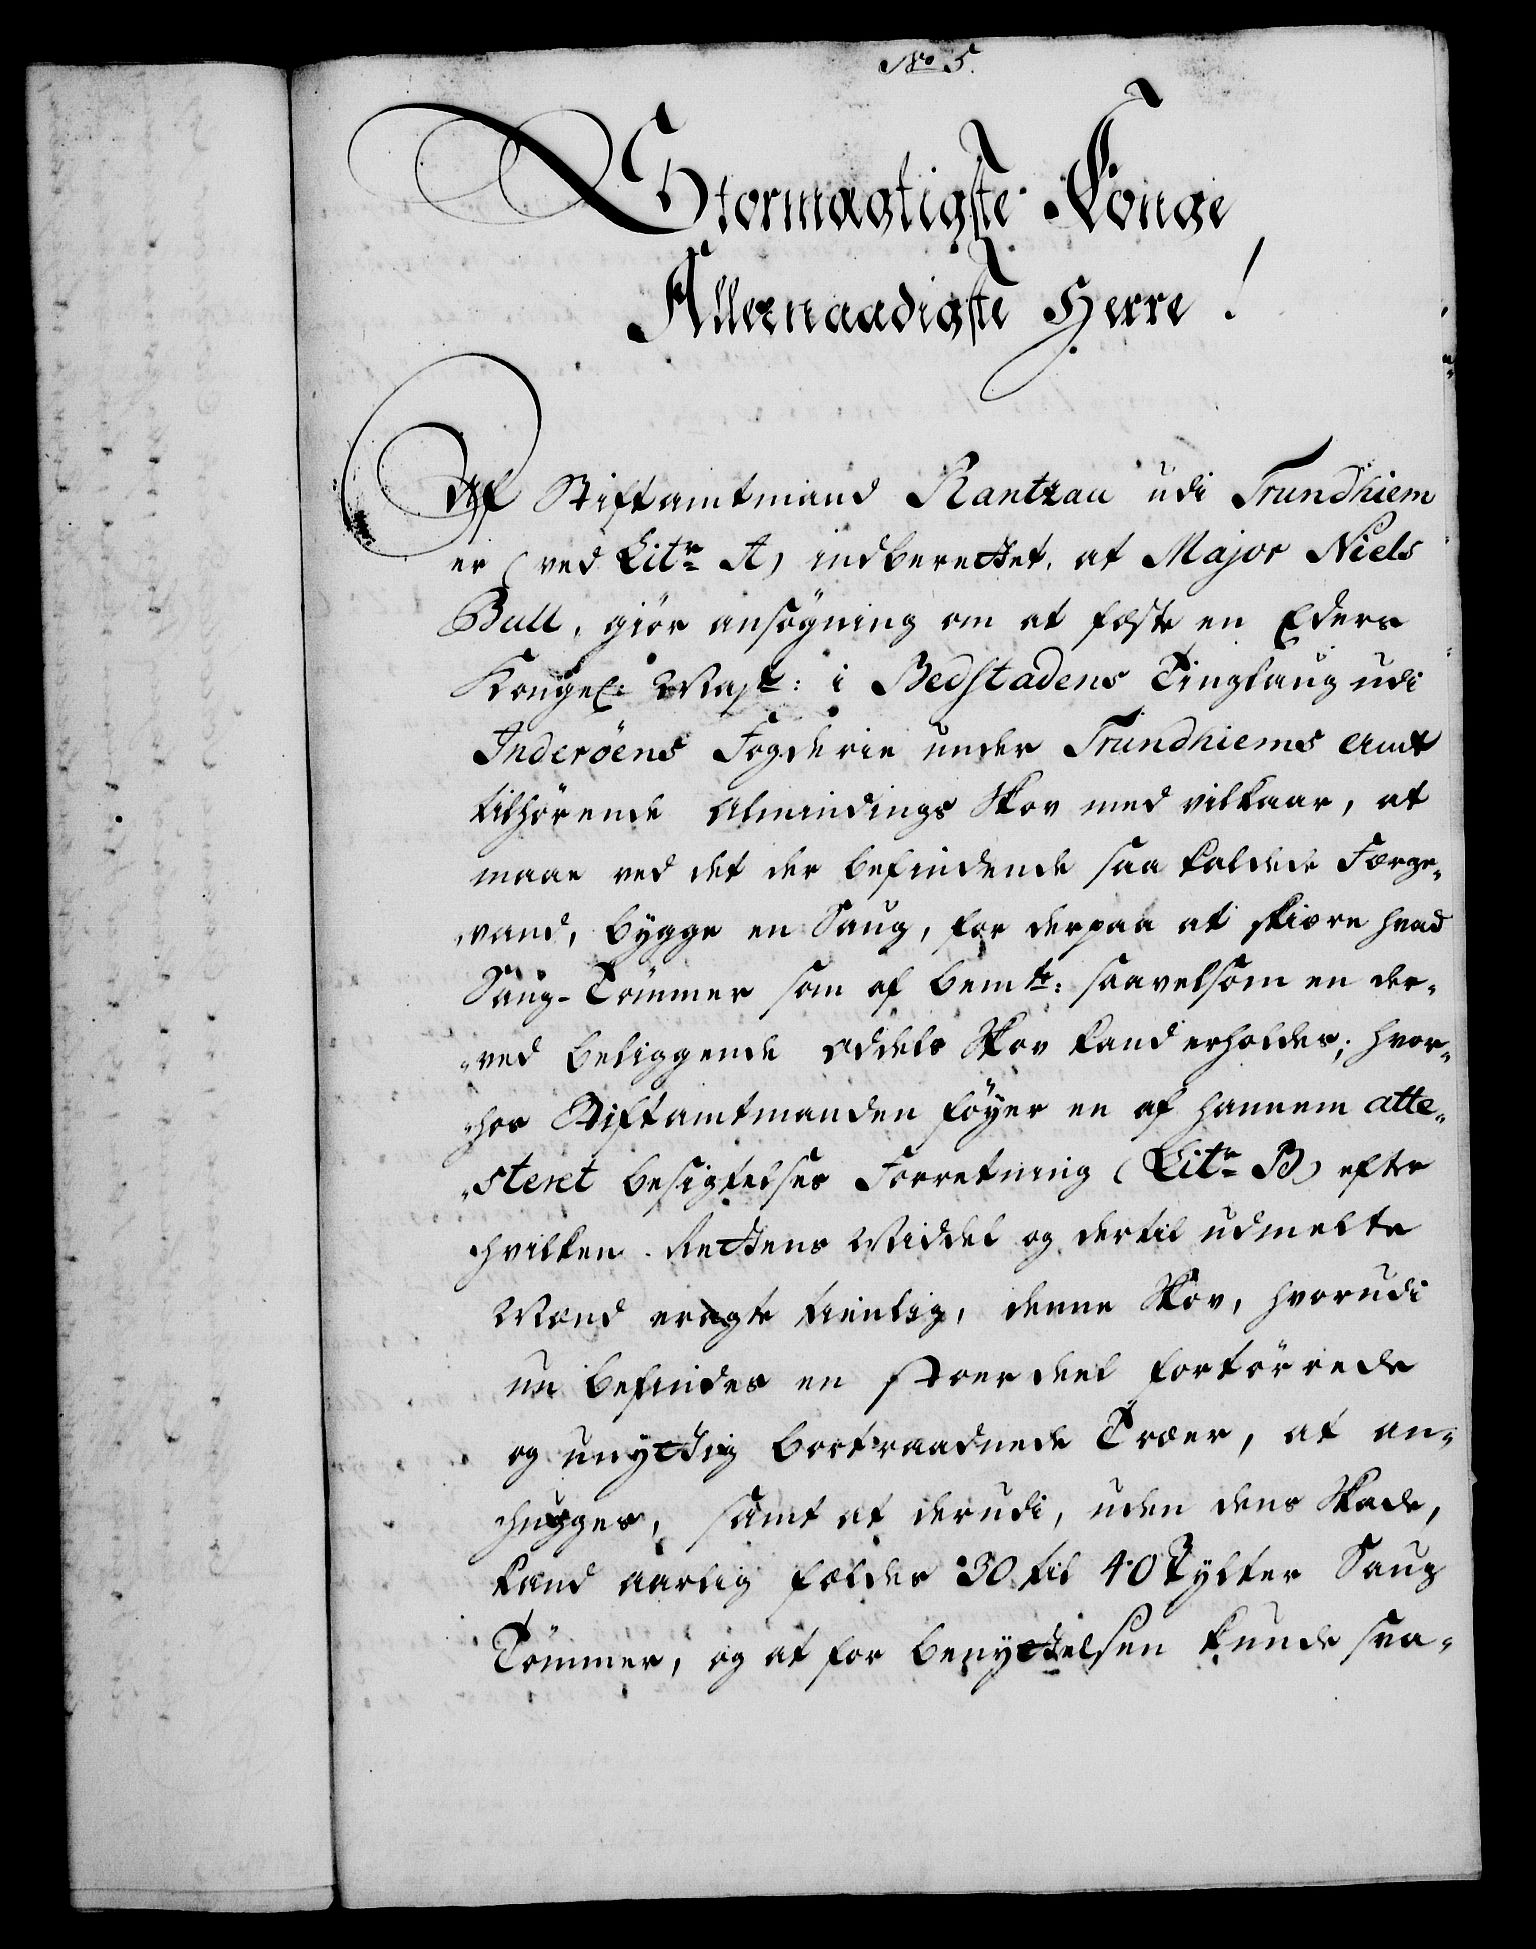 No 5.
Stormægtigste Konge
Allernaadigste Herre!
Af Stiftamtmand Rantzau udi Trundhiem
er (ved Litr A) indberettet, at Major Niels
Bull, giør ansøgning om at fæste en Eders
Kongel: Mayt: i Bedstadens Tinglaug udi
Inderöens Fogderie under Trundhiems Amt
tilhørende Almindings Skov med vilkaar, at
maae ved det der befindende saa kaldede Færge„
„vand, bygge en Saug, for derpaa at skiære hvad
Saug-Tømmer som af bemte: saavelsom en der„
„ved beliggende Oddels Skov kand erholdes; hvor„
„hos Stiftamtmanden föyer en af hannem atte„
„steret besigtelses Forretning (Litr B) efter
hvilken Rettens Middel og dertil udmelte
Mænd eragte tienlig, denne Skov, hvorudi
nu befindes en stoer deel fortørrede
og unyttig bortraadnede Træer, at an„
hugges, samt at derudi, uden dens Skade,
kand aarlig fældes 30 til 40 Tylter Saug
Tømmer, og at for benyttelsen kunde sva„